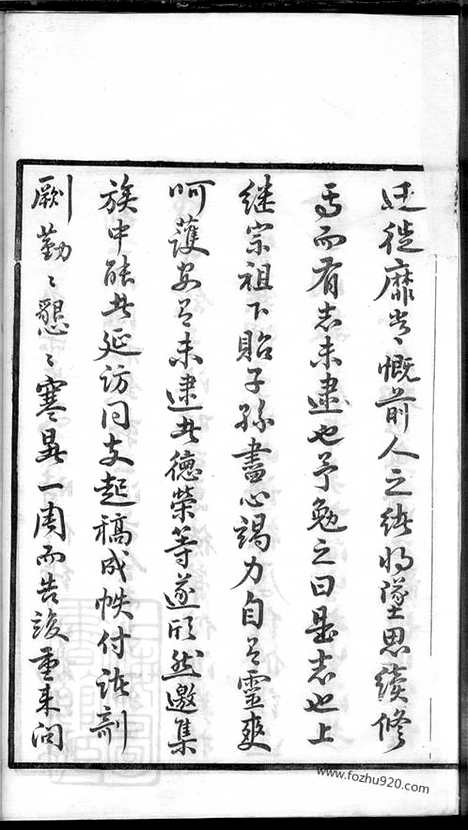 迁徙靡常慨前人之緒將墜思續修
焉而有志未逮也予勉之曰是志也上
继宗祖下貽子孫盡心竭力自有靈爽
呵護安有未逮者德榮等遂欣然邀集
族中能者延访同支起稿成帙付諸剞
劂勤〻懇〻寒暑一周而告竣重来问
www.fozhu920.com